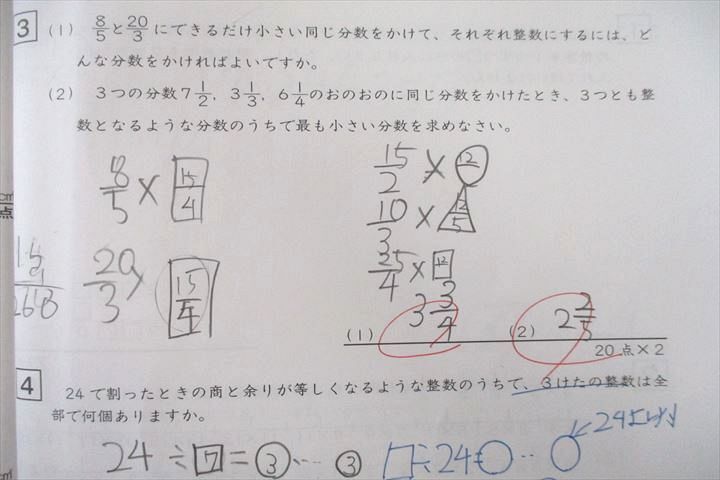 3 (1) 8/5と20/3にできるだけ小さい同じ分数をかけて、それぞれ整数にするには、ど
んな分数をかければよいですか。
(2) 3つの分数7 1/2, 3 1/3, 6 1/4のおのおのに同じ分数をかけたとき、3つとも整
数となるような分数のうちで最も小さい分数を求めなさい。
8/5 × 15/4
20/3 × 15/4
15/2 × 12
10/3 × 12/5
25/4 × 12
(1) 3 3/4
(2) 2 2/5
20点×2
4 24で割ったときの商と余りが等しくなるような整数のうちで、3けたの整数は全
部で何個ありますか。
24÷7=3…3
□÷24=○…○
cm
点